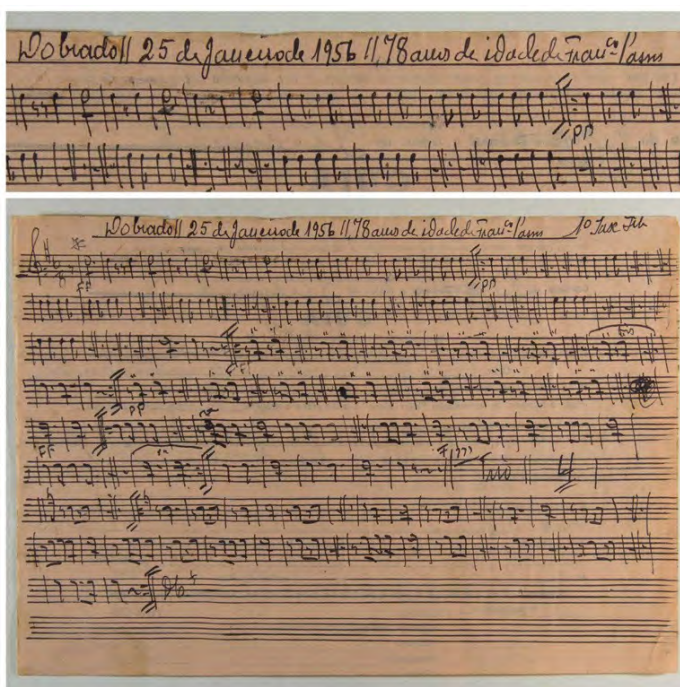 Dobrado || 25 de Janeiro de 1956 || 78 anos de idade de Fran.co
pp
Dobrado || 25 de Janeiro de 1956 || 78 anos de idade de Fran.co 1º Sax
ff
pp
pp
ff
Trio